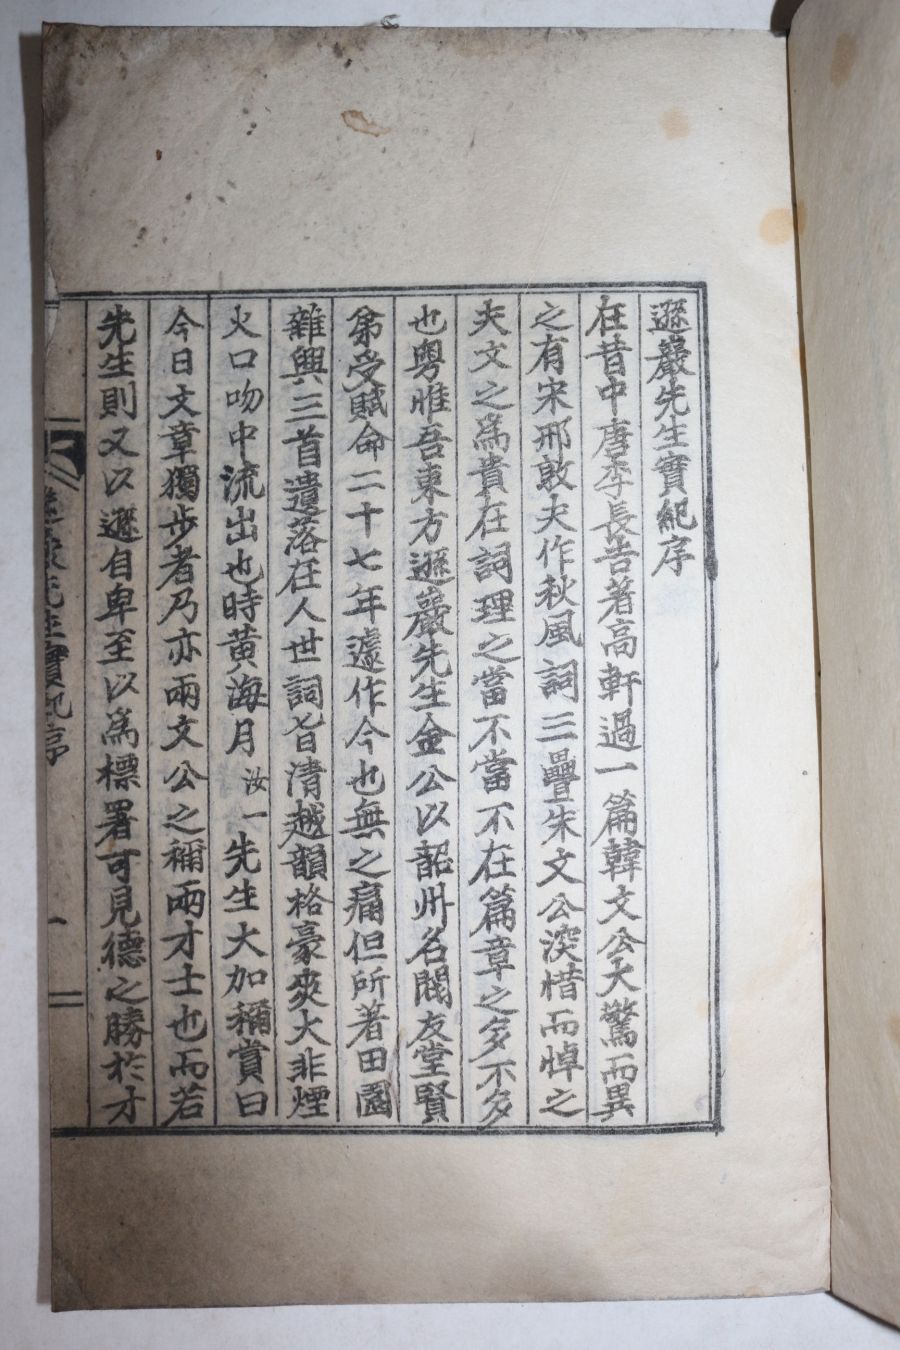 遯巖先生實紀序
在昔中唐李長吉著高軒過一篇韓文公大驚而異
之有宋邢敦夫作秋風詞三疊朱文公深惜而悼之
夫文之爲貴在詞理之當不當不在篇章之多不多
也粤惟吾東方遯巖先生金公以韶州名閥友堂賢
第受賦命二十七年遽作今也無之痛但所著田園
雜興三首遺落在人世詞旨清越韻格豪爽大非煙
火口吻中流出也時黄海月汝一先生大加稱賞曰
今日文章獨步者乃亦兩文公之稱兩才士也而若
先生則又以遯自卑至以爲標署可見德之勝於才
遯巖先生實紀序
一